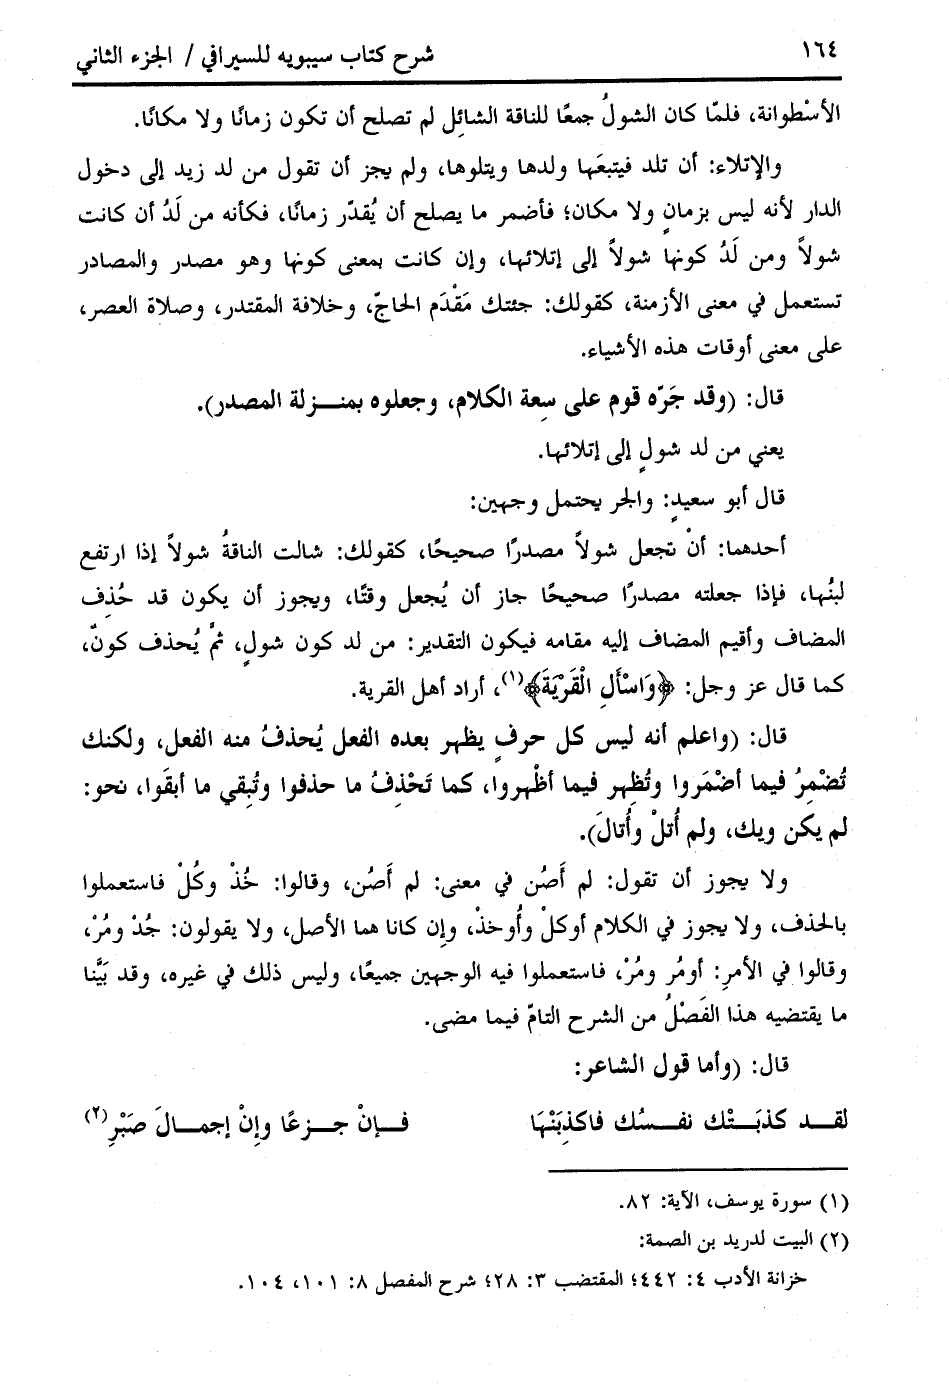 ١٦٤
شرح كتاب سيبويه للسيرافي / الجزء الثاني
الأسْطوانة، فلمّا كان الشولُ جمعًا للناقة الشائِل لم تصلح أن تكون زمانًا ولا مكانًا.
والإتلاء: أن تلد فيتبعَها ولدها ويتلوها، ولم يجز أن تقول من لد زيد إلى دخول
الدار لأنه ليس بزمانٍ ولا مكان؛ فأضمر ما يصلح أن يُقدّر زمانًا، فكأنه من لَدُ أن كانت
شولاً ومن لَدُ كونها شولاً إلى إتلائها، وإن كانت بمعنى كونها وهو مصدر والمصادر
تستعمل في معنى الأزمنة، كقولك: جئتك مَقْدَم الحاجّ، وخلافة المقتدر، وصلاة العصر،
على معنى أوقات هذه الأشياء.
قال: (وقد جَرّه قوم على سِعة الكلام، وجعلوه بمنـزلة المصدر).
يعني من لد شولٍ إلى إتلائها.
قال أبو سعيدٍ: والجر يحتمل وجهين:
أحدهما: أنْ تجعل شولاً مصدرًا صحيحًا، كقولك: شالت الناقةُ شولاً إذا ارتفع
لبنُها، فإذا جعلته مصدرًا صحيحًا جاز أن يُجعل وقتًا، ويجوز أن يكون قد حُذِف
المضاف وأقيم المضاف إليه مقامه فيكون التقدير: من لد كون شولٍ، ثمَّ يُحذف كونٌ،
كما قال عز وجل: ﴿وَاسْأَلِ الْقَرْيَةَ﴾(١)، أراد أهل القرية.
قال: (واعلم أنه ليس كل حرفٍ يظهر بعده الفعل يُحذفُ منه الفعل، ولكنك
تُضْمِرُ فيما أضْمَروا وتُظهِر فيما أظْهروا، كما تَحْذِفُ ما حذفوا وتُبقي ما أبقَوا، نحو:
لم يكن ويك، ولم أُتلْ وأُتالَ).
ولا يجوز أن تقول: لم أَصُن في معنى: لم أَصُن، وقالوا: خُذْ وكُلْ فاستعملوا
بالحذف، ولا يجوز في الكلام أوكلْ وأُوخذْ، وإن كانا هما الأصل، ولا يقولون: جُدْ ومُرْ،
وقالوا في الأمرِ: أومُر ومُرْ، فاستعملوا فيه الوجهين جميعًا، وليس ذلك في غيره، وقد بَيَّنا
ما يقتضيه هذا الفَصْلُ من الشرح التامّ فيما مضى.
قال: (وأما قول الشاعر:
لقـد كذبَـتْك نفـسُك فاكذِبَنْهَا فـإنْ جـزعًا وإنْ إجمـالَ صَبْرِ(٢)
(١) سورة يوسف، الآية: ٨٢.
(٢) البيت لدريد بن الصمة:
خزانة الأدب ٤: ٤٤٢؛ المقتضب ٣: ٢٨؛ شرح المفصل ٨: ١٠١، ١٠٤.